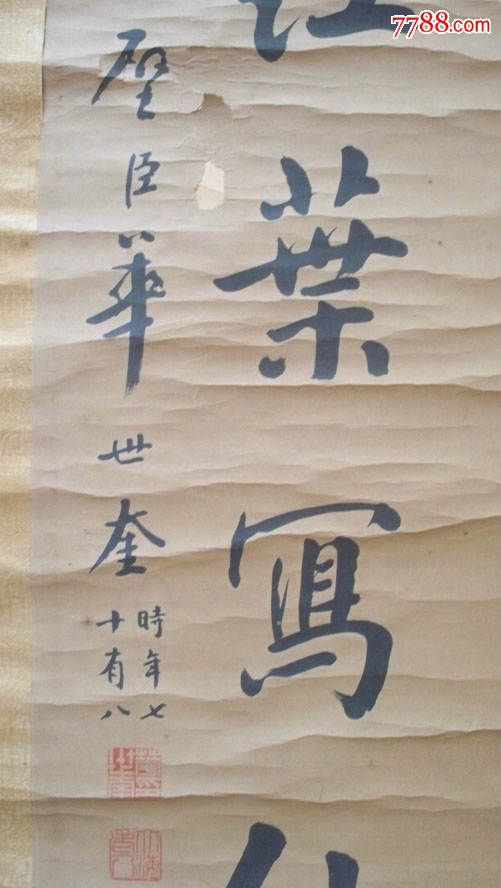 7788.com
葉寫
璧臣華世奎
時年七
十有八